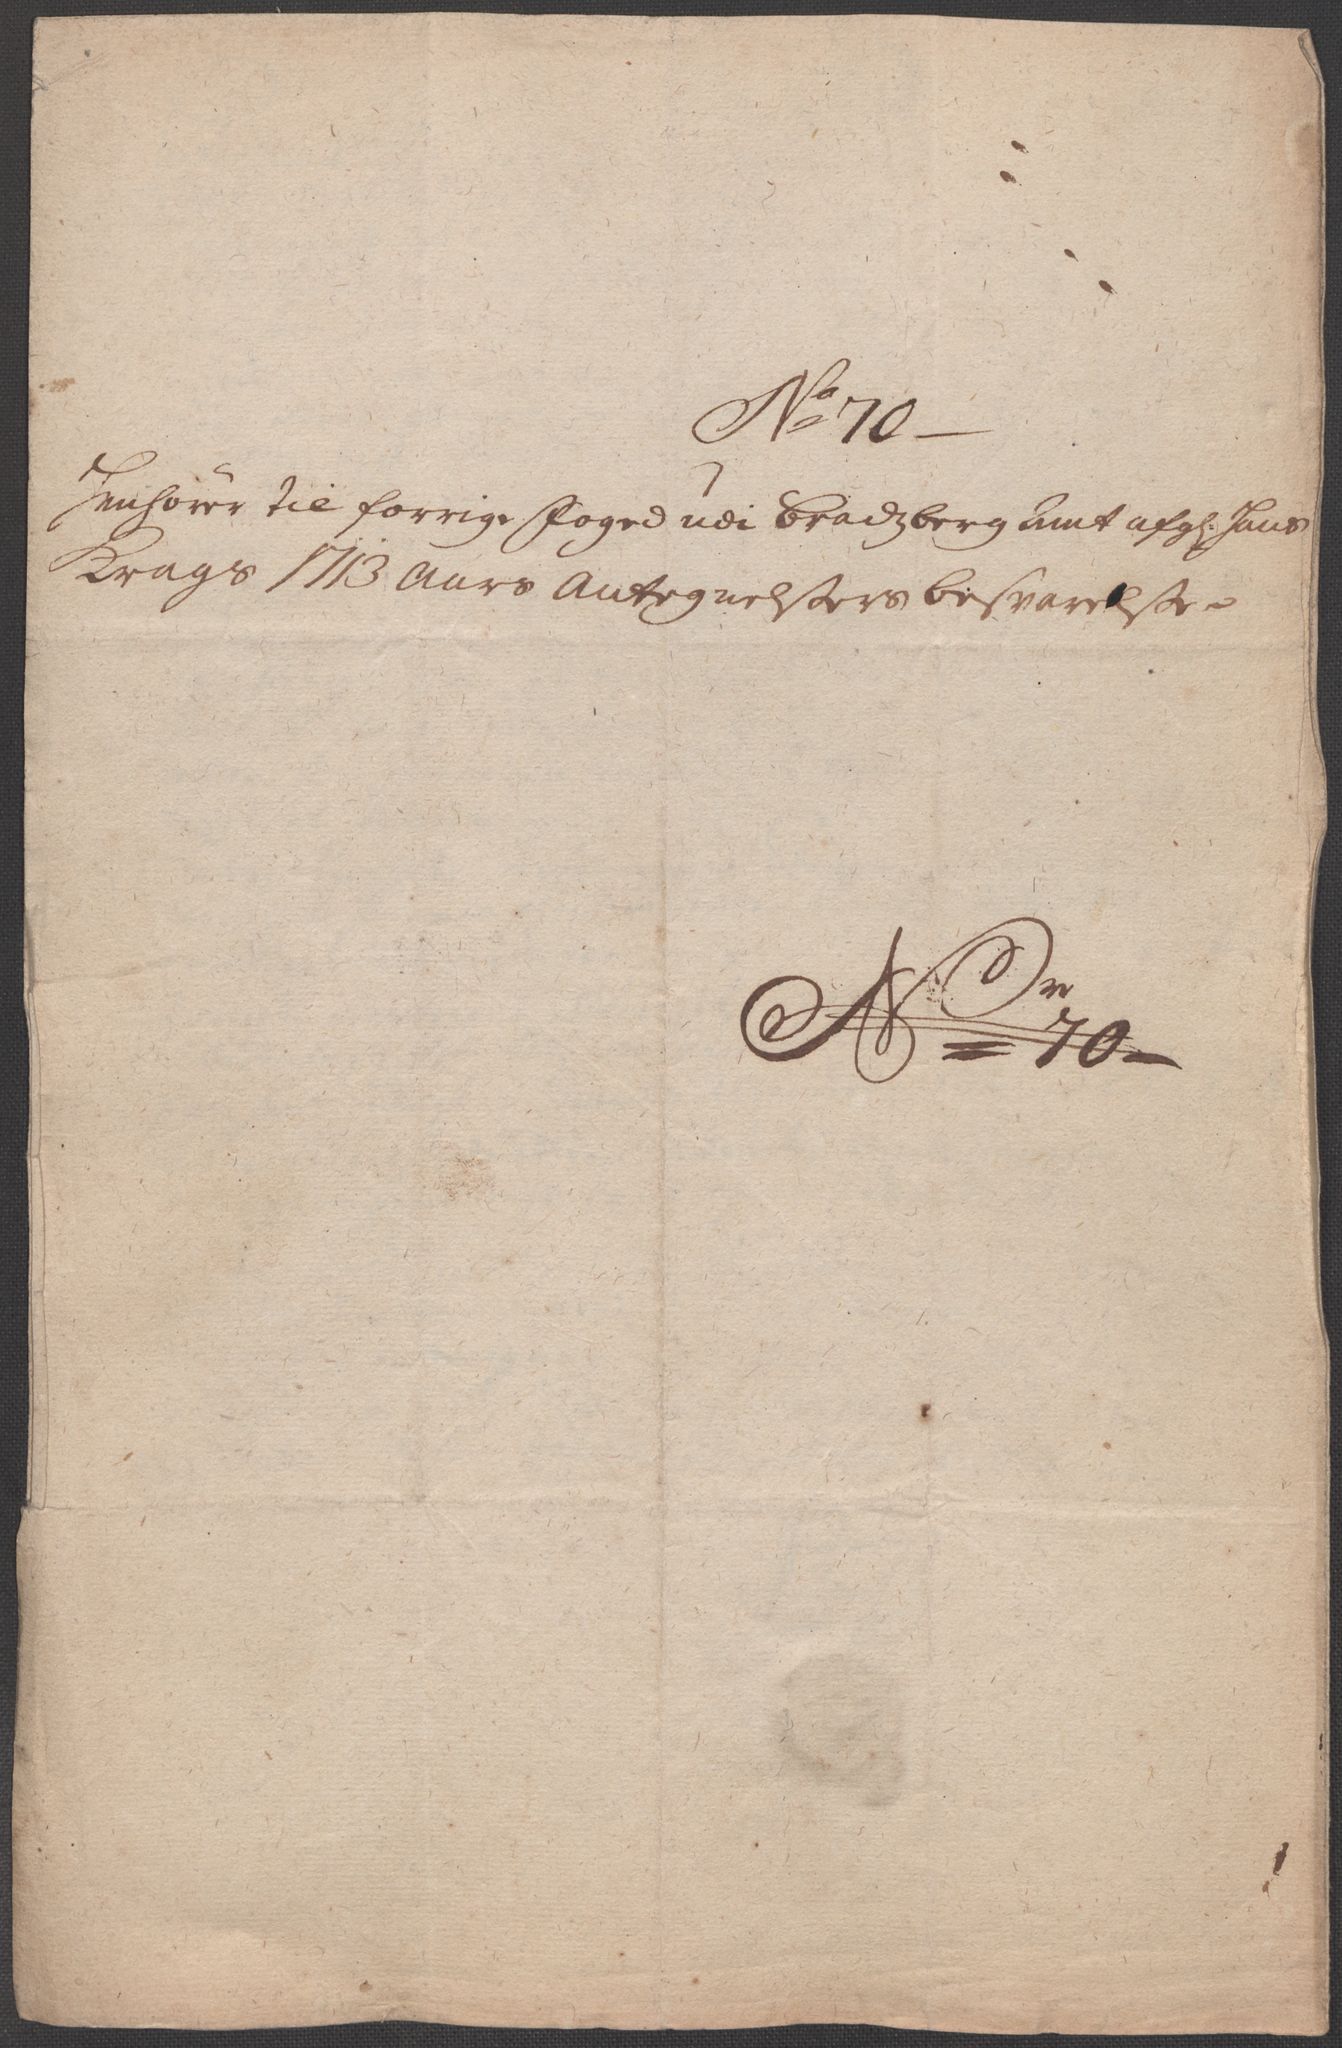 No 70
Henhörer til forrige Foged udi Bradzberg Amt afgl: Hans
Krags 1713 Aars Antegnelsers besvarelse
No 70